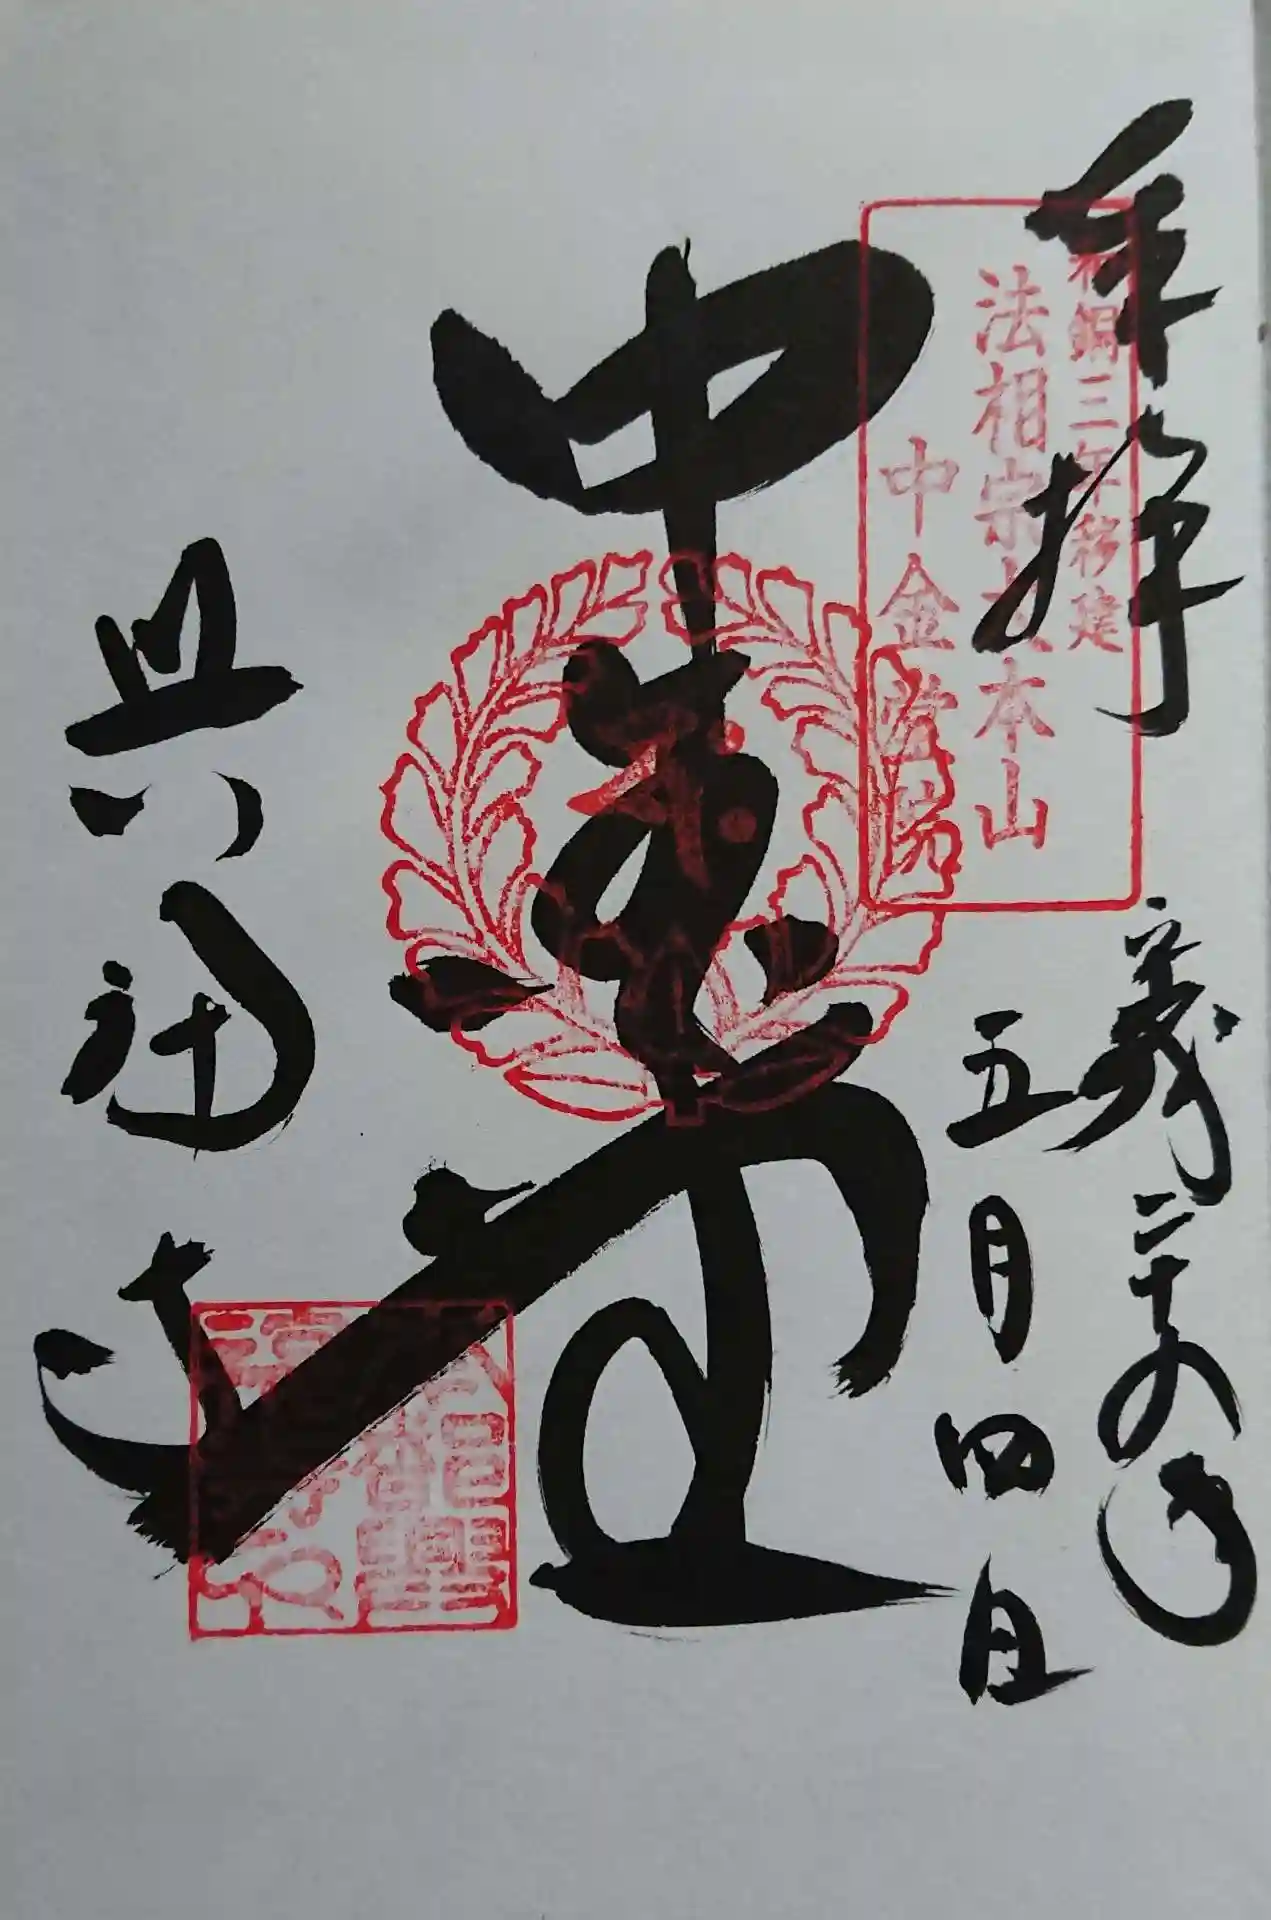 奉拝
和銅三年移建
法相宗大本山
中金堂院
平成二十九年
五月四日
中金堂
興福寺